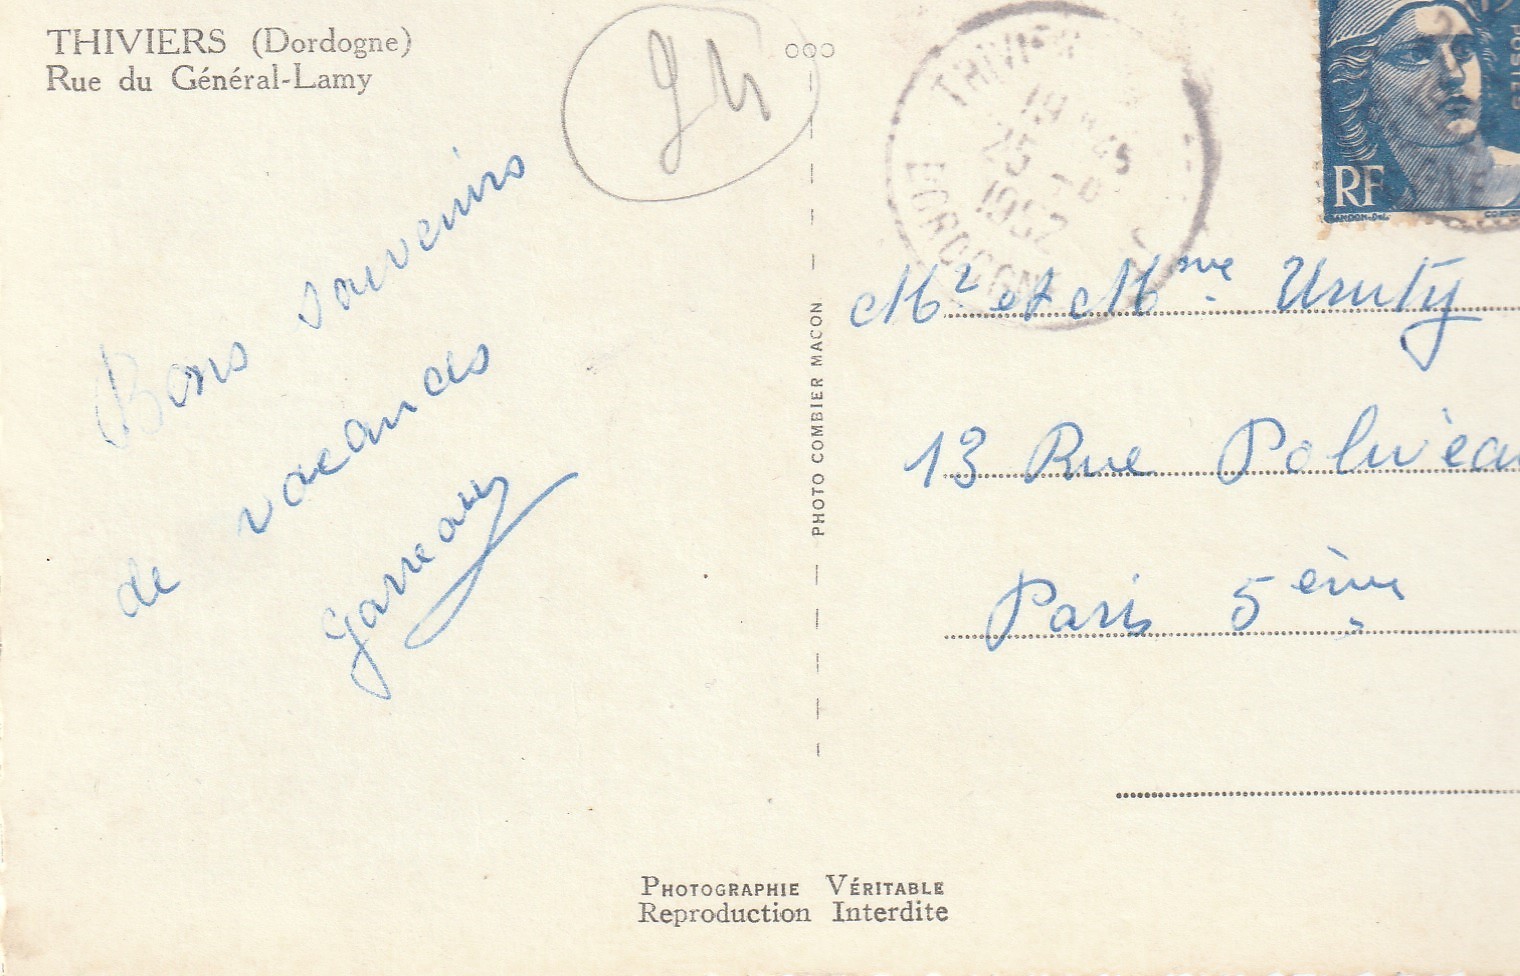 THIVIERS (Dordogne)
Rue du Général-Lamy
Bons souvenirs
de vacances
Garreau
PHOTO COMBIER MACON
THIVIERS
19 45
25
1952
DORDOGNE
POSTES
RF
GANDON-DEL.
Mr et Mme
13 Rue Poliveau
Paris 5ème
PHOTOGRAPHIE VÉRITABLE
Reproduction Interdite